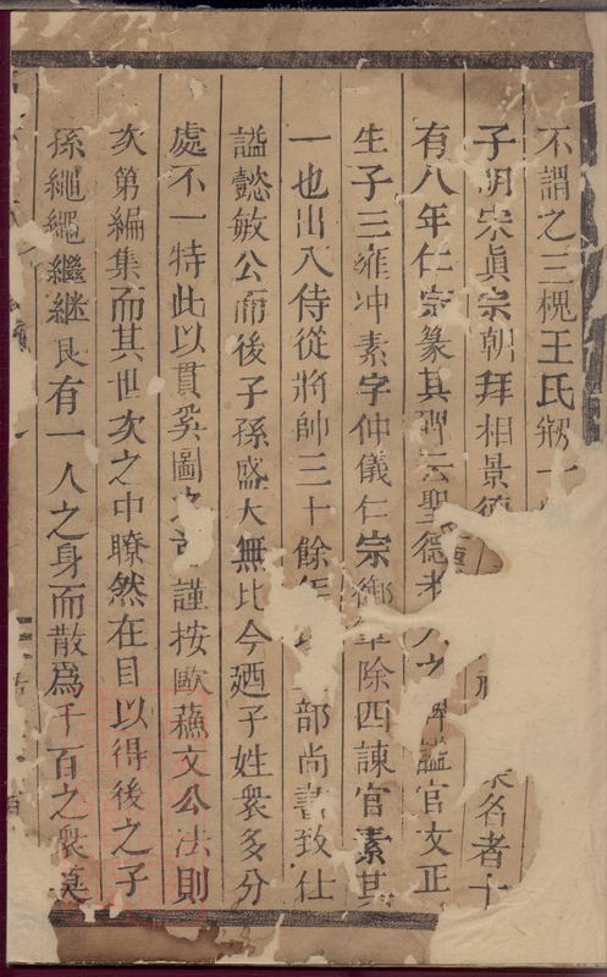 不謂之三槐王氏䎹一
子明宋真宗朝拜相景德名者十
有八年仁宗篆其碑云聖德老人之碑謚官文正
生子三雍冲素字仲儀仁宗御筆除四諫官素其
一也出入侍從將帥三十餘年部尚書致仕
謚懿敏公而後子孫盛大無比今廼子姓衆多分
處不一特此以貫奕圖之謹按歐蘓文公法則
次第編集而其世次之中瞭然在目以得後之子
孫繩繩繼継良有一人之身而散爲千百之衆莫